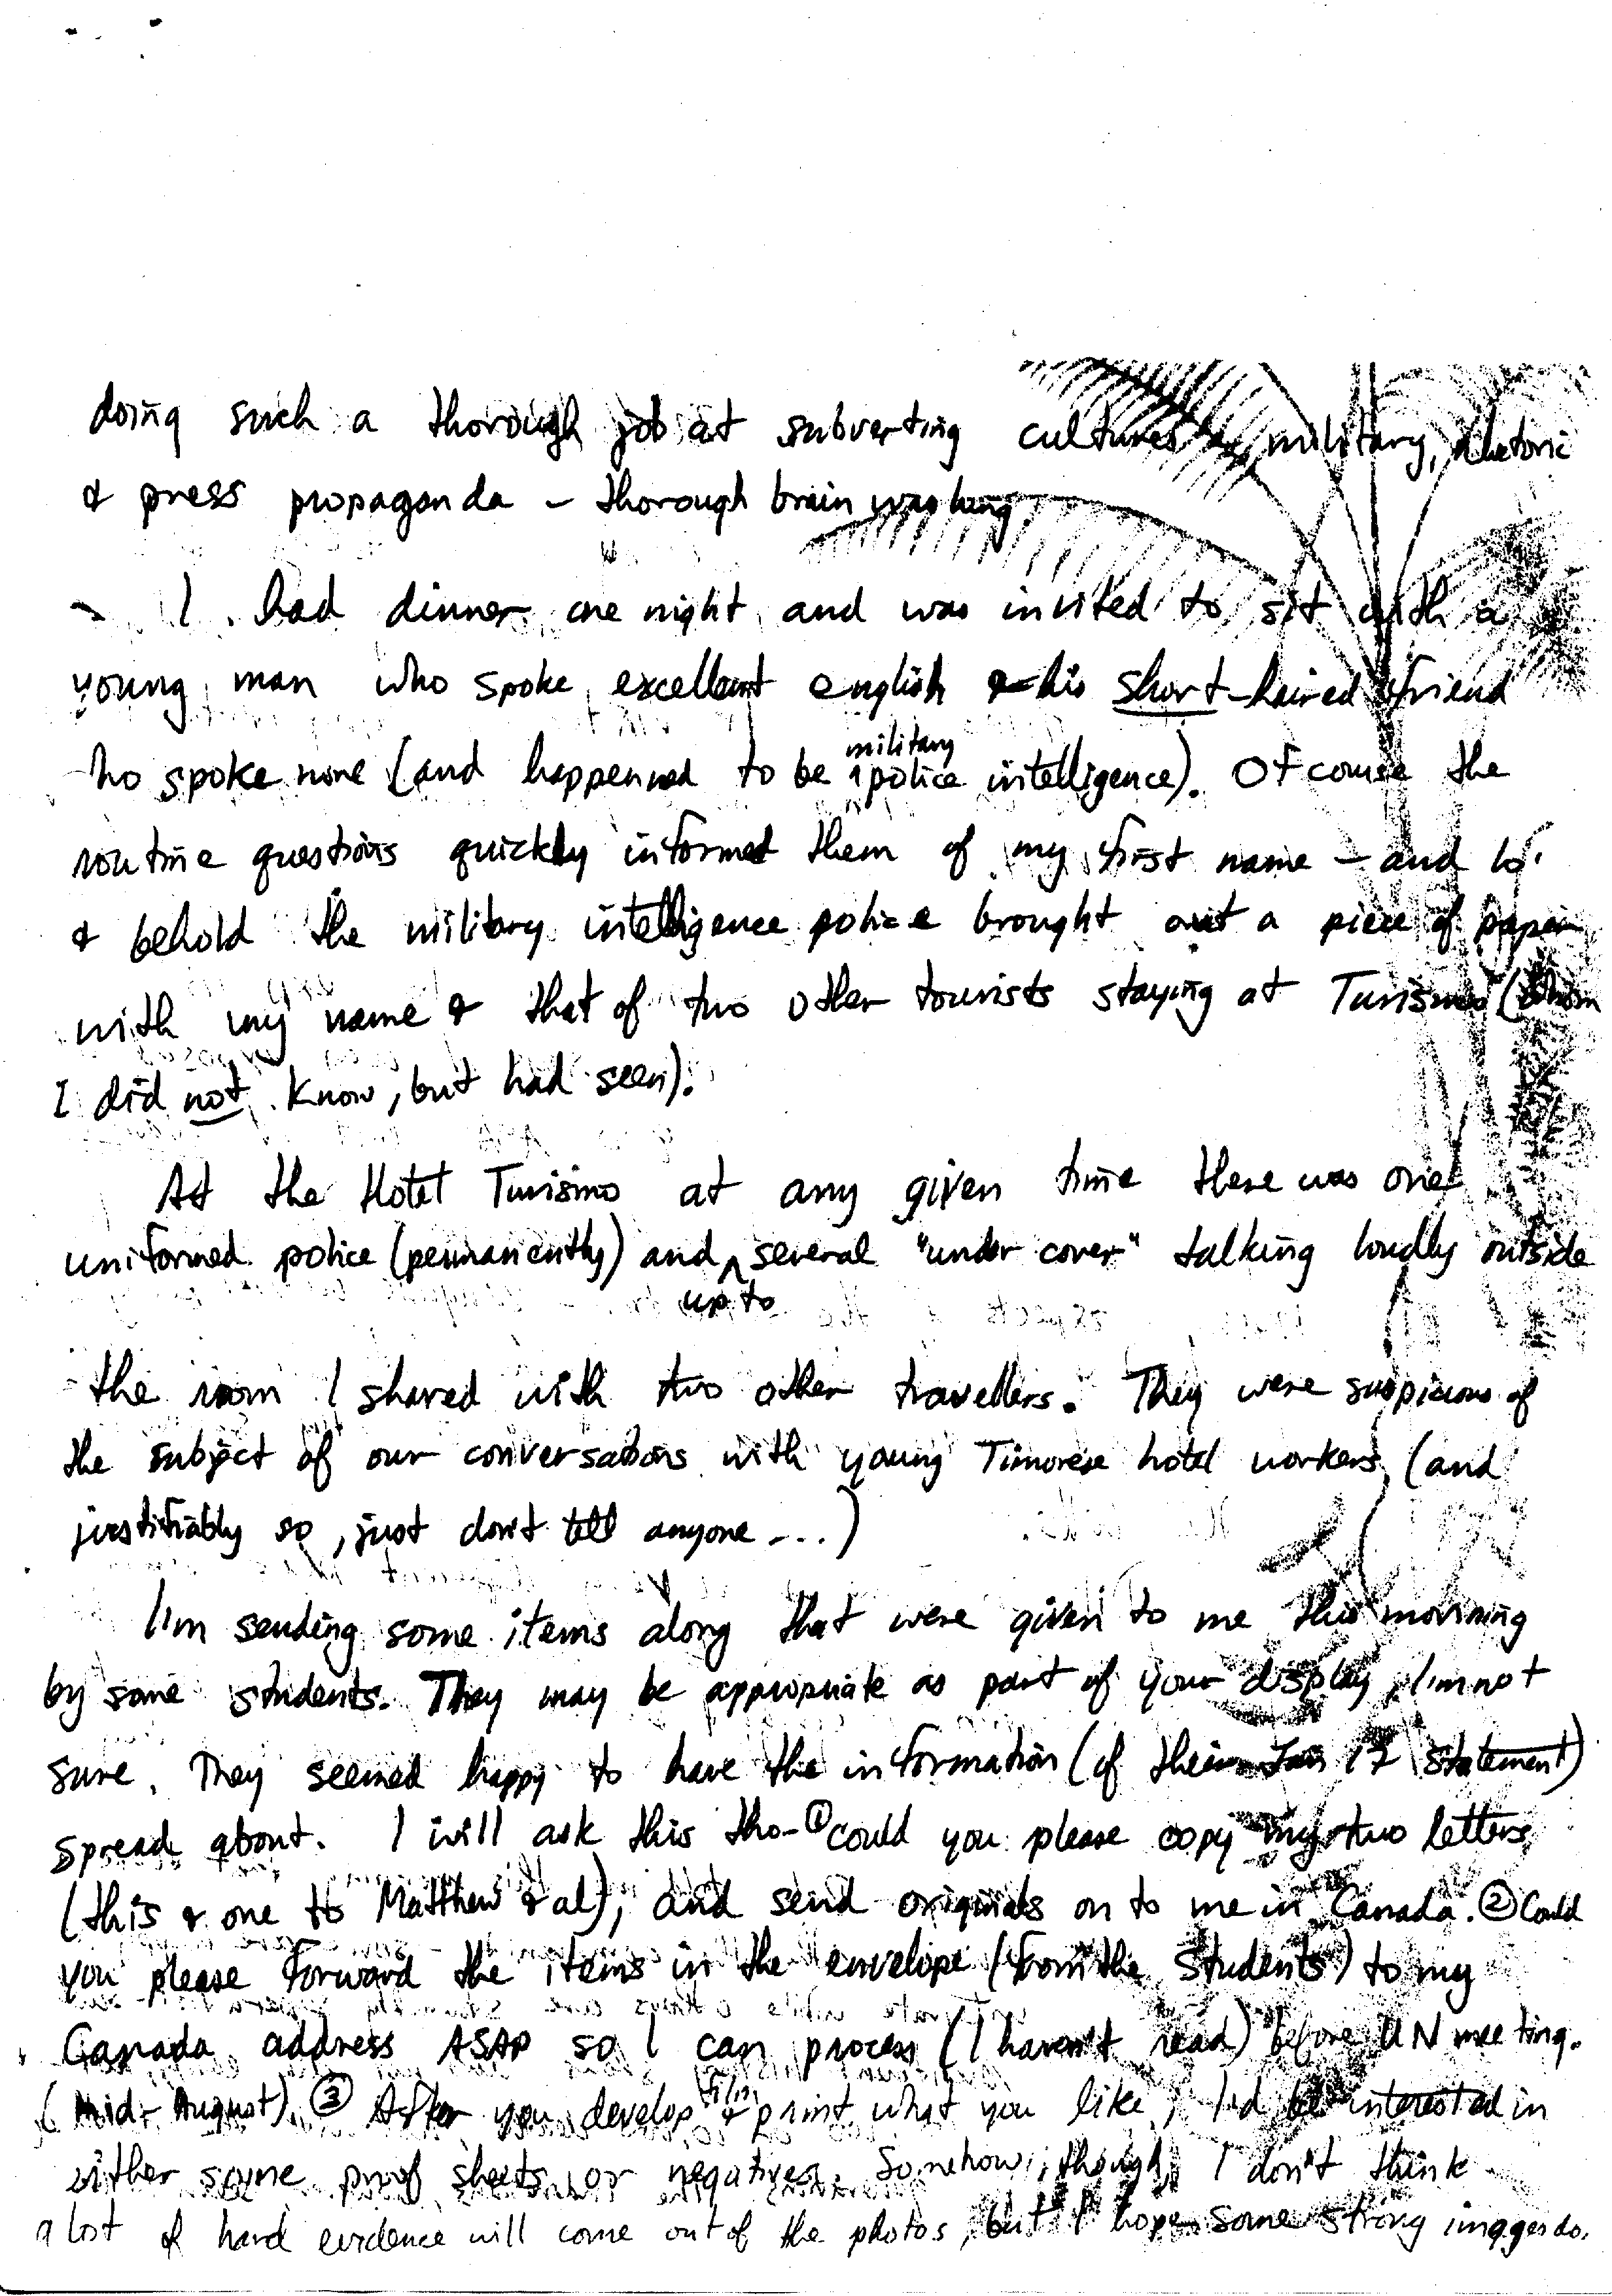 doing such a thorough job at subverting cultures by military, rhetoric
& press propaganda – thorough brain washing
I had dinner one night and was invited to sit with a
young man who spoke excellent english & his short-haired friend
ho spoke none (and happenned to be military police intelligence). Of course the
routine questions quickly informed them of my first name – and lo
& behold the military intelligence police brought out a piece of paper
with my name & that of two other tourists staying at Turismo (whom
I did not know, but had seen).
At the Hotel Turismo at any given time there was one
uniformed police (permanently) and up to several "under cover" talking loudly outside
the room I shared with two other travellers. They were suspicious of
the subject of our conversations with young Timorese hotel workers (and
justifiably so, just don't tell anyone ...)
I'm sending some items along that were given to me this morning
by some students. They may be appropriate as part of your display, I'm not
sure. They seemed happy to have the information (of their 17 statement)
spread about. I will ask this tho- ① could you please copy my two letters
(this & one to Matthew & al), and send originals on to me in Canada. ② Could
you please forward the items in the envelope (from the students) to my
Canada address ASAP so I can process (I haven't read) before UN meeting.
(Mid-August). ③ After you develop film & print what you like, I'd be interested in
either some proof sheets or negatives. Somehow, though, I don't think
a lost of hard evidence will come out of the photos, but I hope some strong images do.